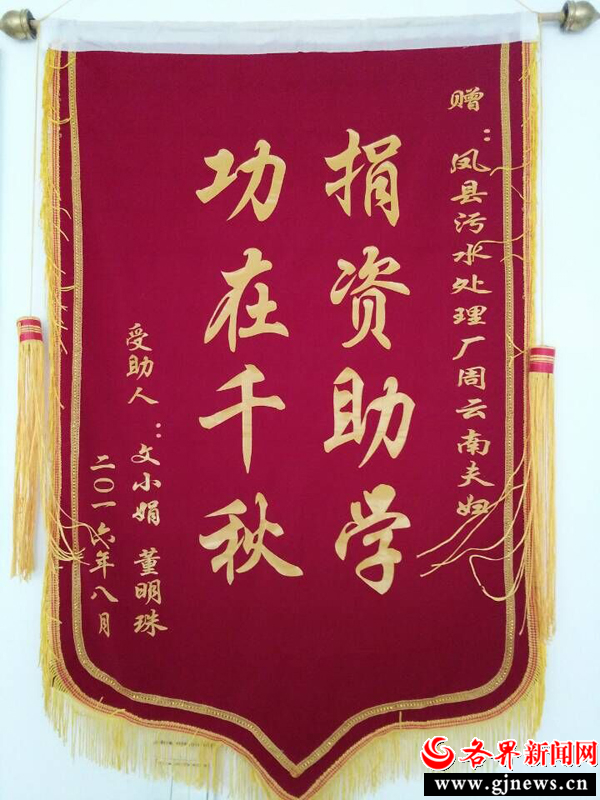 赠：凤县污水处理厂周云南夫妇
捐资助学
功在千秋
受助人：文小娟 董明珠
二〇一六年八月
各界新闻网
www.gjnews.cn